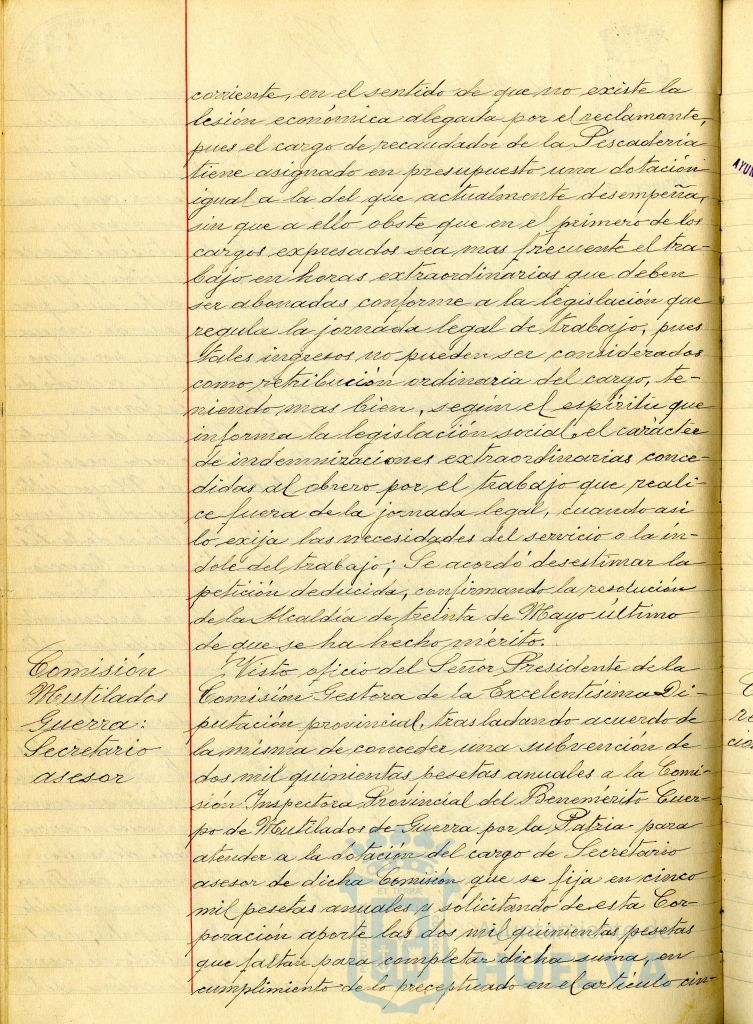 corriente, en el sentido de que no existe la
lesión económica alegada por el reclamante,
pues el cargo de recaudador de la Pescadería
tiene asignado en presupuesto una dotación
igual a la del que actualmente desempeña,
sin que a ello obste que en el primero de los
cargos expresados sea mas frecuente el tra-
bajo en horas extraordinarias que deben
ser abonadas conforme a la legislación que
regula la jornada legal de trabajo, pues
tales ingresos no pueden ser considerados
como retribución ordinaria del cargo, te-
niendo mas bien, según el espíritu que
informa la legislación social, el carácter
de indemnizaciones extraordinarias conce-
didas al obrero por el trabajo que reali-
ce fuera de la jornada legal, cuando asi
lo exija las necesidades del servicio o la ín-
dole del trabajo; Se acordó desestimar la
petición deducida, confirmando la resolución
de la Alcaldía de treinta de Mayo último
de que se ha hecho mérito.
Comisión
Mutilados
Guerra:
Secretario
asesor
Visto oficio del Señor Presidente de la
Comisión Gestora de la Excelentísima Di-
putación provincial, trasladando acuerdo de
la misma de conceder una subvención de
dos mil quinientas pesetas anuales a la Comi-
sión Inspectora Provincial del Benemérito Cuer-
po de Mutilados de Guerra por la Patria para
atender a la dotación del cargo de Secretario
asesor de dicha Comisión que se fija en cinco
mil pesetas anuales y solicitando de esta Cor-
poración aporte las dos mil quinientas pesetas
que faltan para completar dicha suma, en
cumplimiento de lo preceptuado en el artículo cin-
HUELVA
AYUN